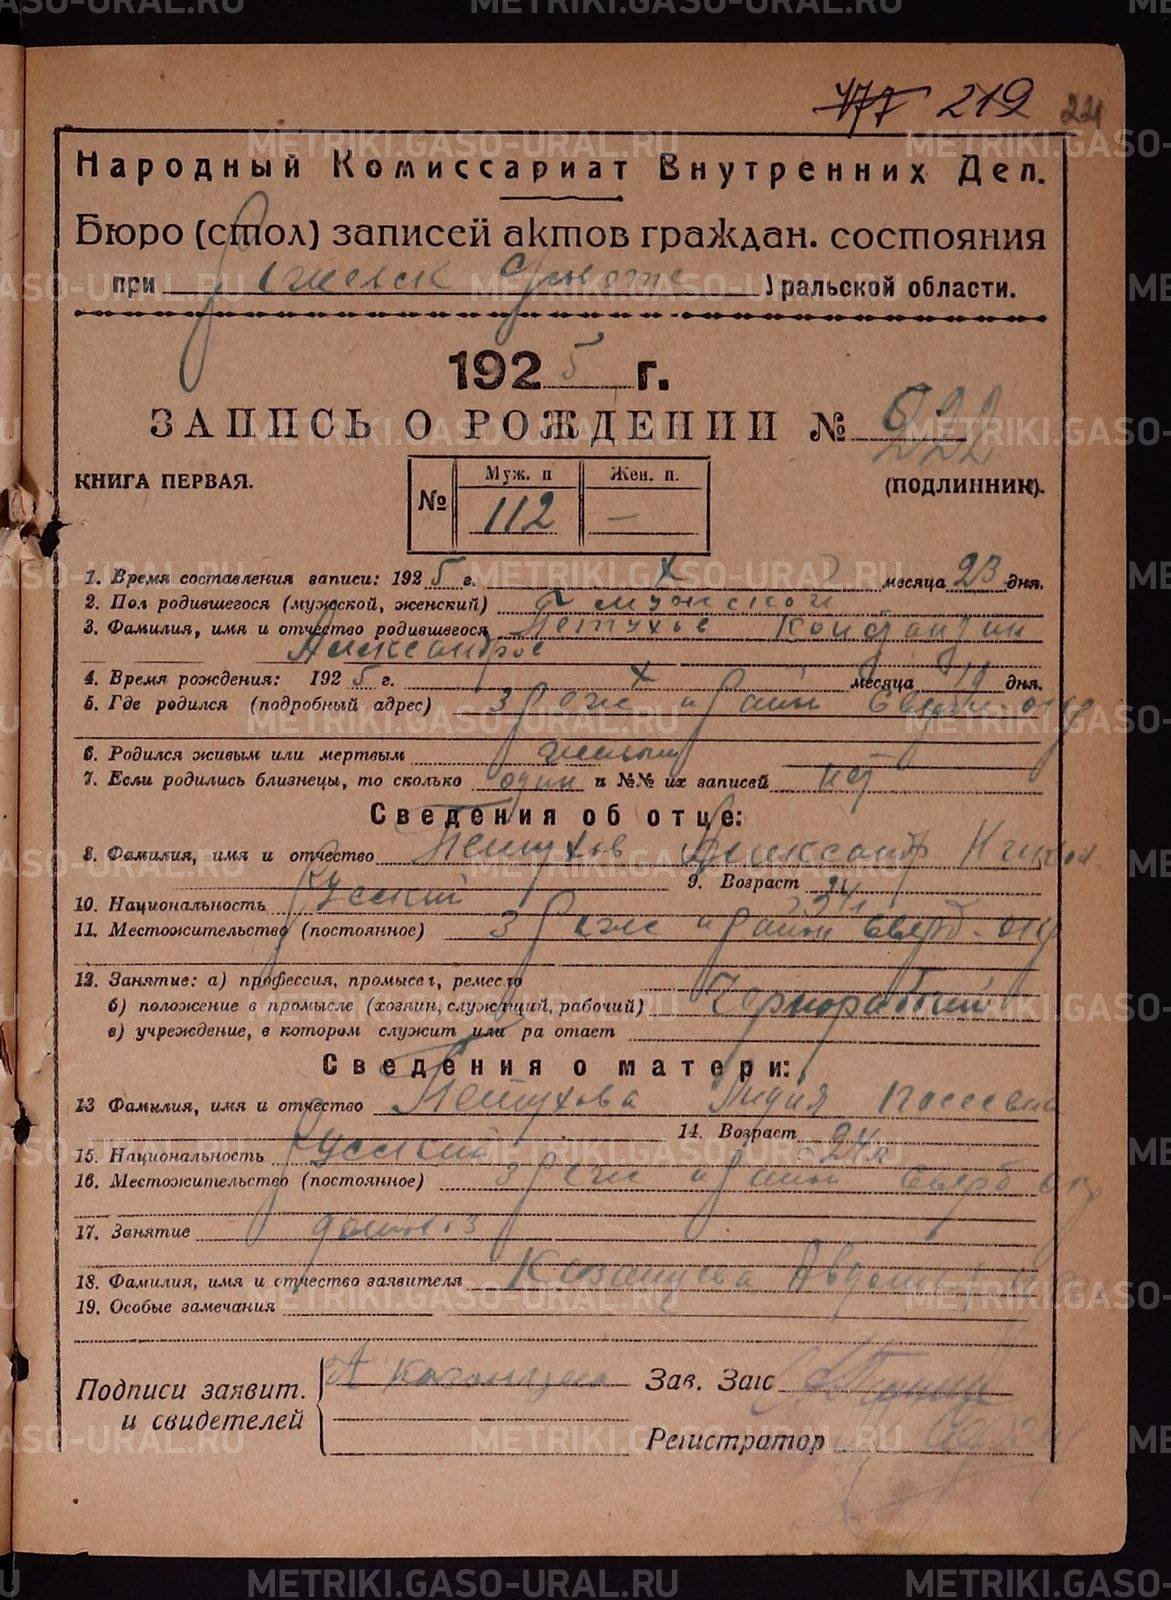 177 219 221
Народный Комиссариат Внутренних Дел.
Бюро (стол) записей актов граждан. состояния
при Режевск Уральской области.
1925 г.
ЗАПИСЬ О РОЖДЕНИИ № 222
КНИГА ПЕРВАЯ.
(ПОДЛИННИК).
№ Муж. п Жен. п.
112 —
1. Время составления записи: 1925 г. X месяца 23 дня.
2. Пол родившегося (мужской, женский) мужской
3. Фамилия, имя и отчество родившегося Петухов Константин
Александров
4. Время рождения: 1925 г. X месяца 19 дня.
5. Где родился (подробный адрес) З Реже и район Свердл. окр
6. Родился живым или мертвым живым —
7. Если родились близнецы, то сколько один и №№ их записей нет
Сведения об отце:
8. Фамилия, имя и отчество Петухов Александр
9. Возраст
10. Национальность Русский
11. Местожительство (постоянное) З Реже и район Сверд. окр
12. Занятие: а) профессия, промысел, ремесло
б) положение в промысле (хозяин, служащий, рабочий) Чернорабочий
в) учреждение, в котором служит или ра отает
Сведения о матери:
13 Фамилия, имя и отчество Петухова Лидия
14. Возраст 24
15. Национальность Русский
16. Местожительство (постоянное) З Реже и район Сверд окр
17. Занятие домохоз
18. Фамилия, имя и отчество заявителя Казанцева
19. Особые замечания
Подписи заявит.
и свидетелей
А Казанцева
Зав. Загс
Регистратор
METRIKI.GASO-URAL.RU